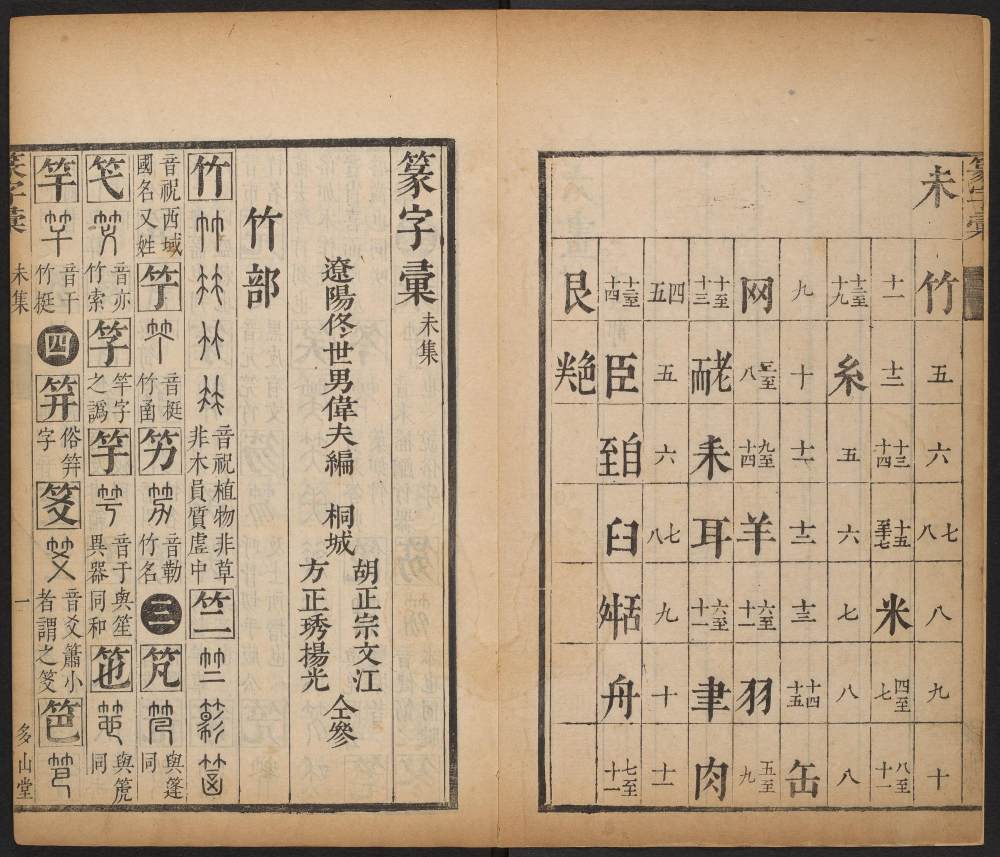 篆字彙
未
竹 五 六 七八 八 九 十
十一 十二 十三十四 十五至七 米 四至七 八至十一
糸 五 六 七 八 八
九 十 十一 十二 十三 十四十五 缶
网 三至八 九至十四 羊 六至十一 羽 五至九
十至十三 耒 耳 六至十一 聿 肉
四五 五 六 七八 九 十 十一
十二至十四 臣 自至 臼 舟 七至十一
艮
篆字彙 未集
遼陽佟世男偉夫編 桐城 胡正宗文江 方正琇揚光 仝參
竹部
竹 音祝植物非草非木員質虛中 竺
音祝西域國名又姓 竹函 音梃 竻 音勒竹名 三 笂 與篷同
笁 音亦竹索 竽字之譌 竽 音于與笙異器同和 竾 與箎同
竿 音干竹梃 四 笄 俗筓字 笅 音爻簫小者謂之笅 笆
篆字彙 未集 一 多山堂